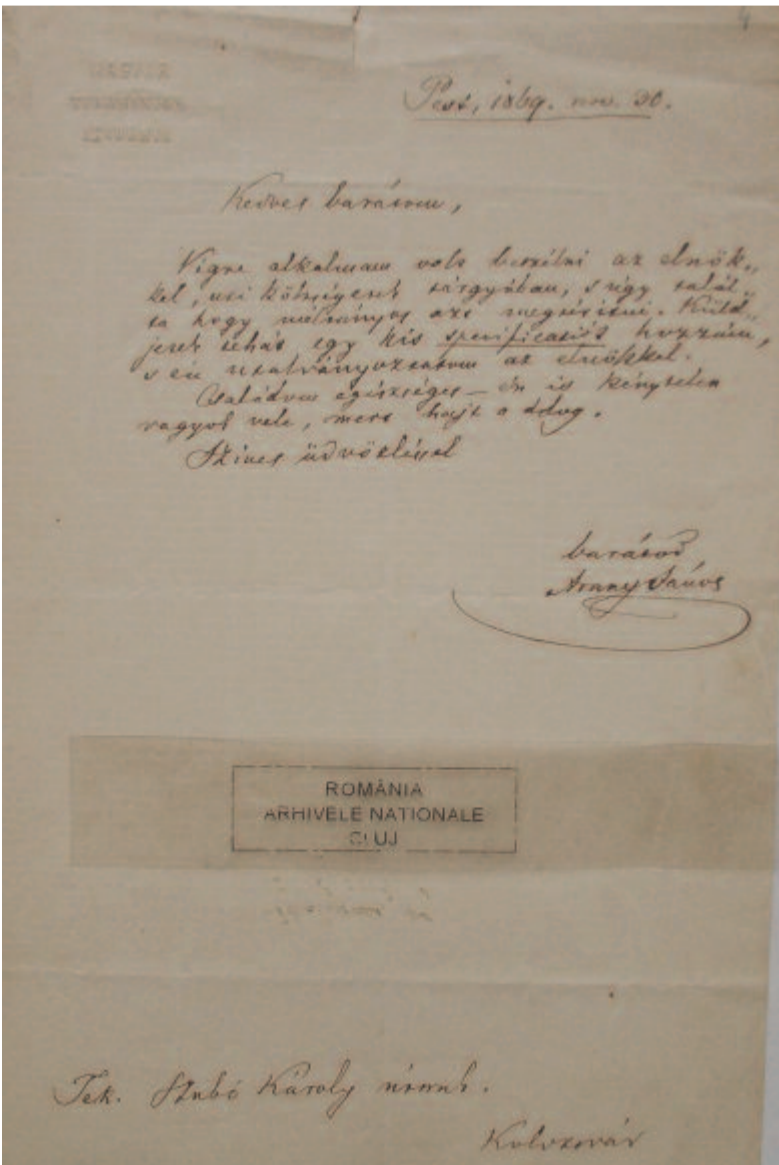 4
Pest, 1869. nov. 30.
Kedves barátom,
Végre alkalmam volt beszélni az elnök„
kel, uti költségeitek tárgyában, s úgy talál„
ta hogy méltányos azt megtéríteni. Küld„
jetek tehát egy kis specificatiót hozzám,
s én utalványoztatom az elnökkel.
Családom egészséges – én is kénytelen
vagyok vele, mert hajt a dolog.
Szives üdvözléssel
barátod
Arany János
ROMÂNIA
ARHIVELE NATIONALE
CLUJ
Tek. Szabó Károly úrnak.
Kolozsvár